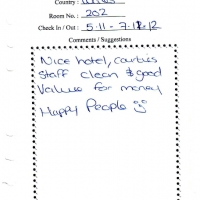 Country :
Room No. : 202
Check In / Out : 5.11 - 7.12.12
Comments / Suggestions
Nice hotel,
staff clean & good
Value for money
Happy People